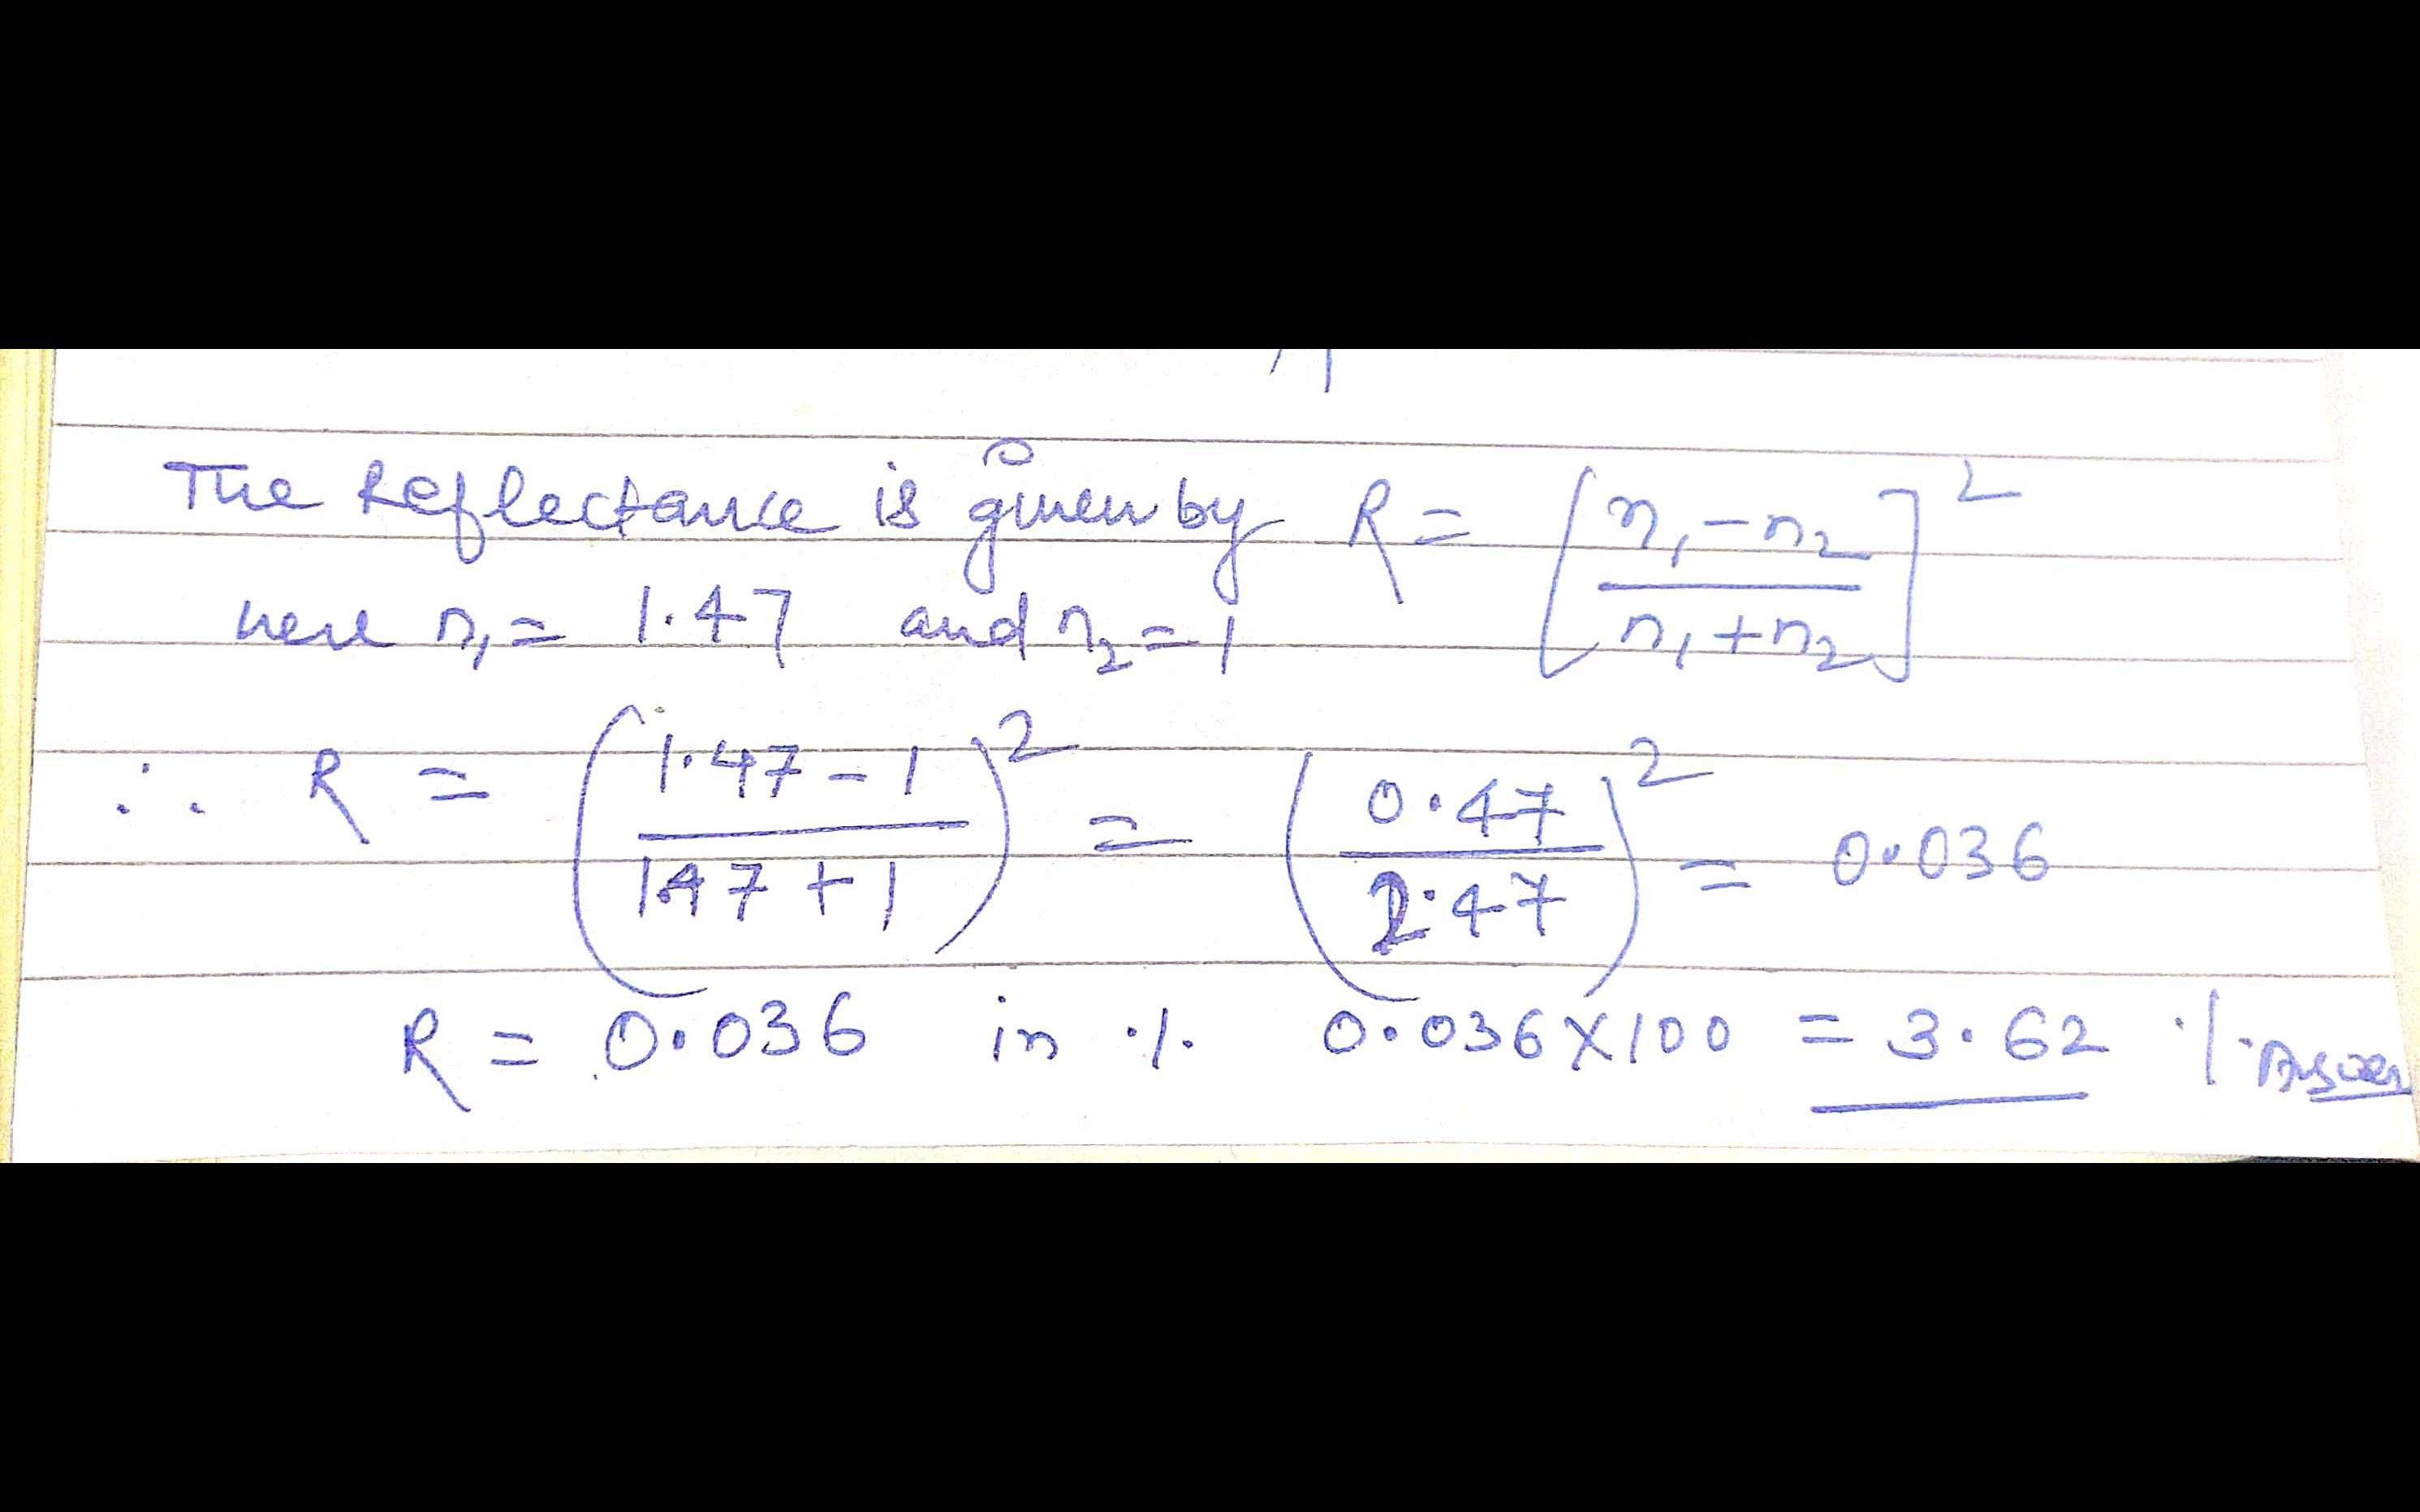 The Reflectance is given by R = [n₁-n₂ / n₁+n₂]²
here n₁ = 1.47 and n₂ = 1
∴ R = (1.47-1 / 1.47+1)² = (0.47 / 2.47)² = 0.036
R = 0.036 in % 0.036X100 = 3.62 % Answer